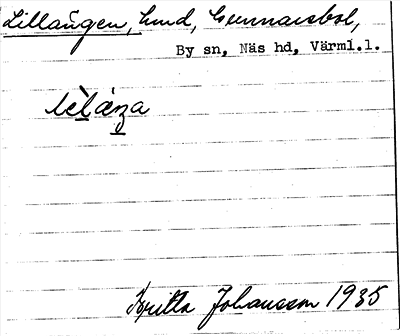 Lillängen, Lund, Gunnarsbol,
By sn, Näs hd, Värml.l.
Britta Johansson 1935